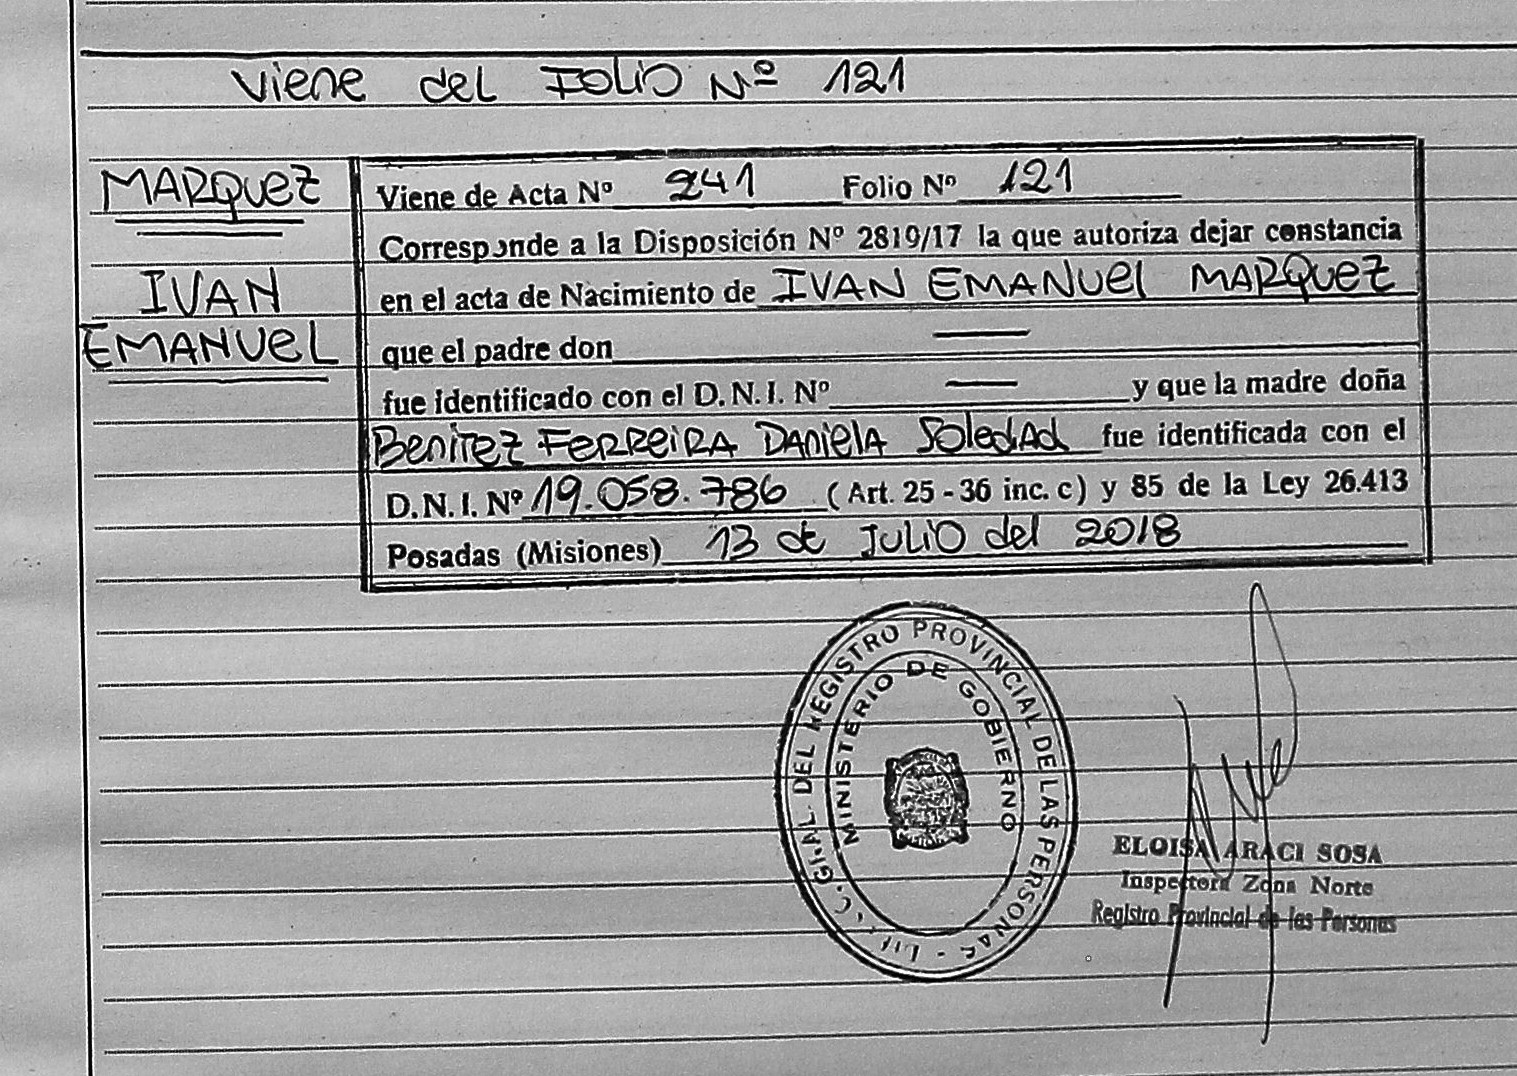 Viene del Folio Nº 121
MARQUEZ
IVAN
EMANUEL
Viene de Acta Nº 241 Folio Nº 121
Corresponde a la Disposición Nº 2819/17 la que autoriza dejar constancia
en el acta de Nacimiento de IVAN EMANUEL MARQUEZ
que el padre don —
fue identificado con el D.N.I. Nº — y que la madre doña
Benitez Ferreira Daniela Soledad fue identificada con el
D.N.I. Nº 19.058.786 (Art. 25 - 36 inc. c) y 85 de la Ley 26.413
Posadas (Misiones) 13 de Julio del 2018
GRAL. DEL REGISTRO PROVINCIAL DE LAS PERSONAS -
MINISTERIO DE GOBIERNO
ELOISA ARACI SOSA
Inspectora Zona Norte
Registro Provincial de las Personas